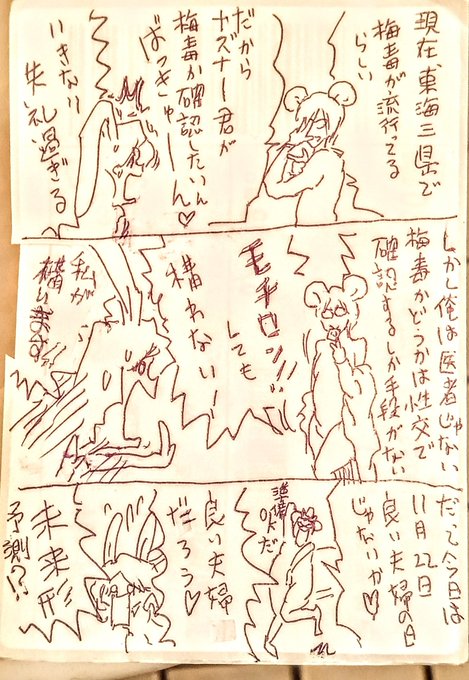 現在、東海三県で
梅毒が流行ってる
らしい
だから
ヤズナー君が
梅毒か確認したいん
ばっきゅーーん♡
いきなり
失礼過ぎる
しかし俺は医者じゃない
梅毒かどうかは性交で
確認するしか手段がない
モチロン!!
しても
構わない!
私が
構います!!
だって今日は
11月22日
良い夫婦の日
じゃないか♡
OKだ
良い夫婦
だろう♡
未来形!!
予測!?